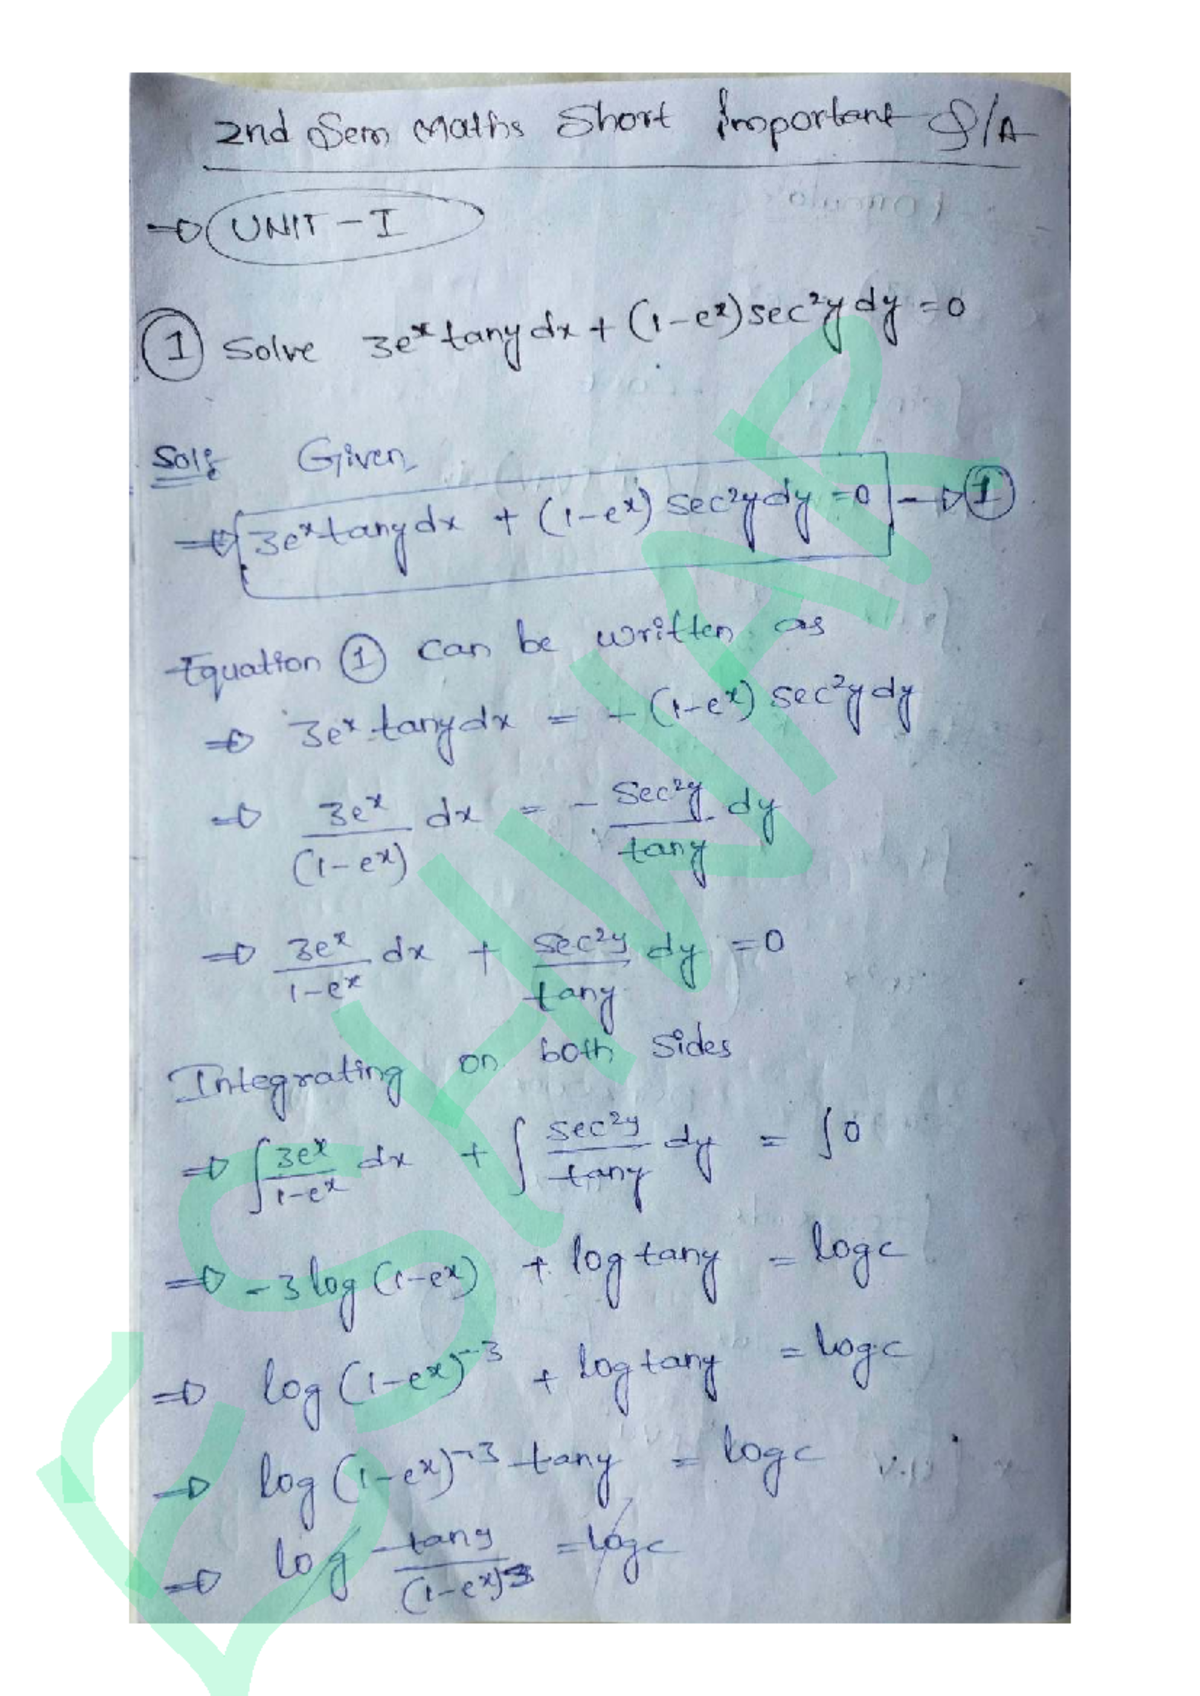 2nd Sem Maths Short Important Q/A
⇒ UNIT - I
① Solve 3eˣ tany dx + (1-eˣ) sec²y dy = 0
Sol: Given,
⇒ 3eˣ tany dx + (1-eˣ) sec²y dy = 0 → ①
Equation ① can be written as
⇒ 3eˣ tany dx = -(1-eˣ) sec²y dy
⇒ 3eˣ/(1-eˣ) dx = - sec²y/tany dy
⇒ 3eˣ/1-eˣ dx + sec²y/tany dy = 0
Integrating on both sides
⇒ ∫ 3eˣ/1-eˣ dx + ∫ sec²y/tany dy = ∫0
⇒ -3 log (1-eˣ) + log tany = logc
⇒ log (1-eˣ)⁻³ + log tany = logc
⇒ log (1-eˣ)⁻³ tany = logc
⇒ log tany/(1-eˣ)³ = logc
ESHWAR